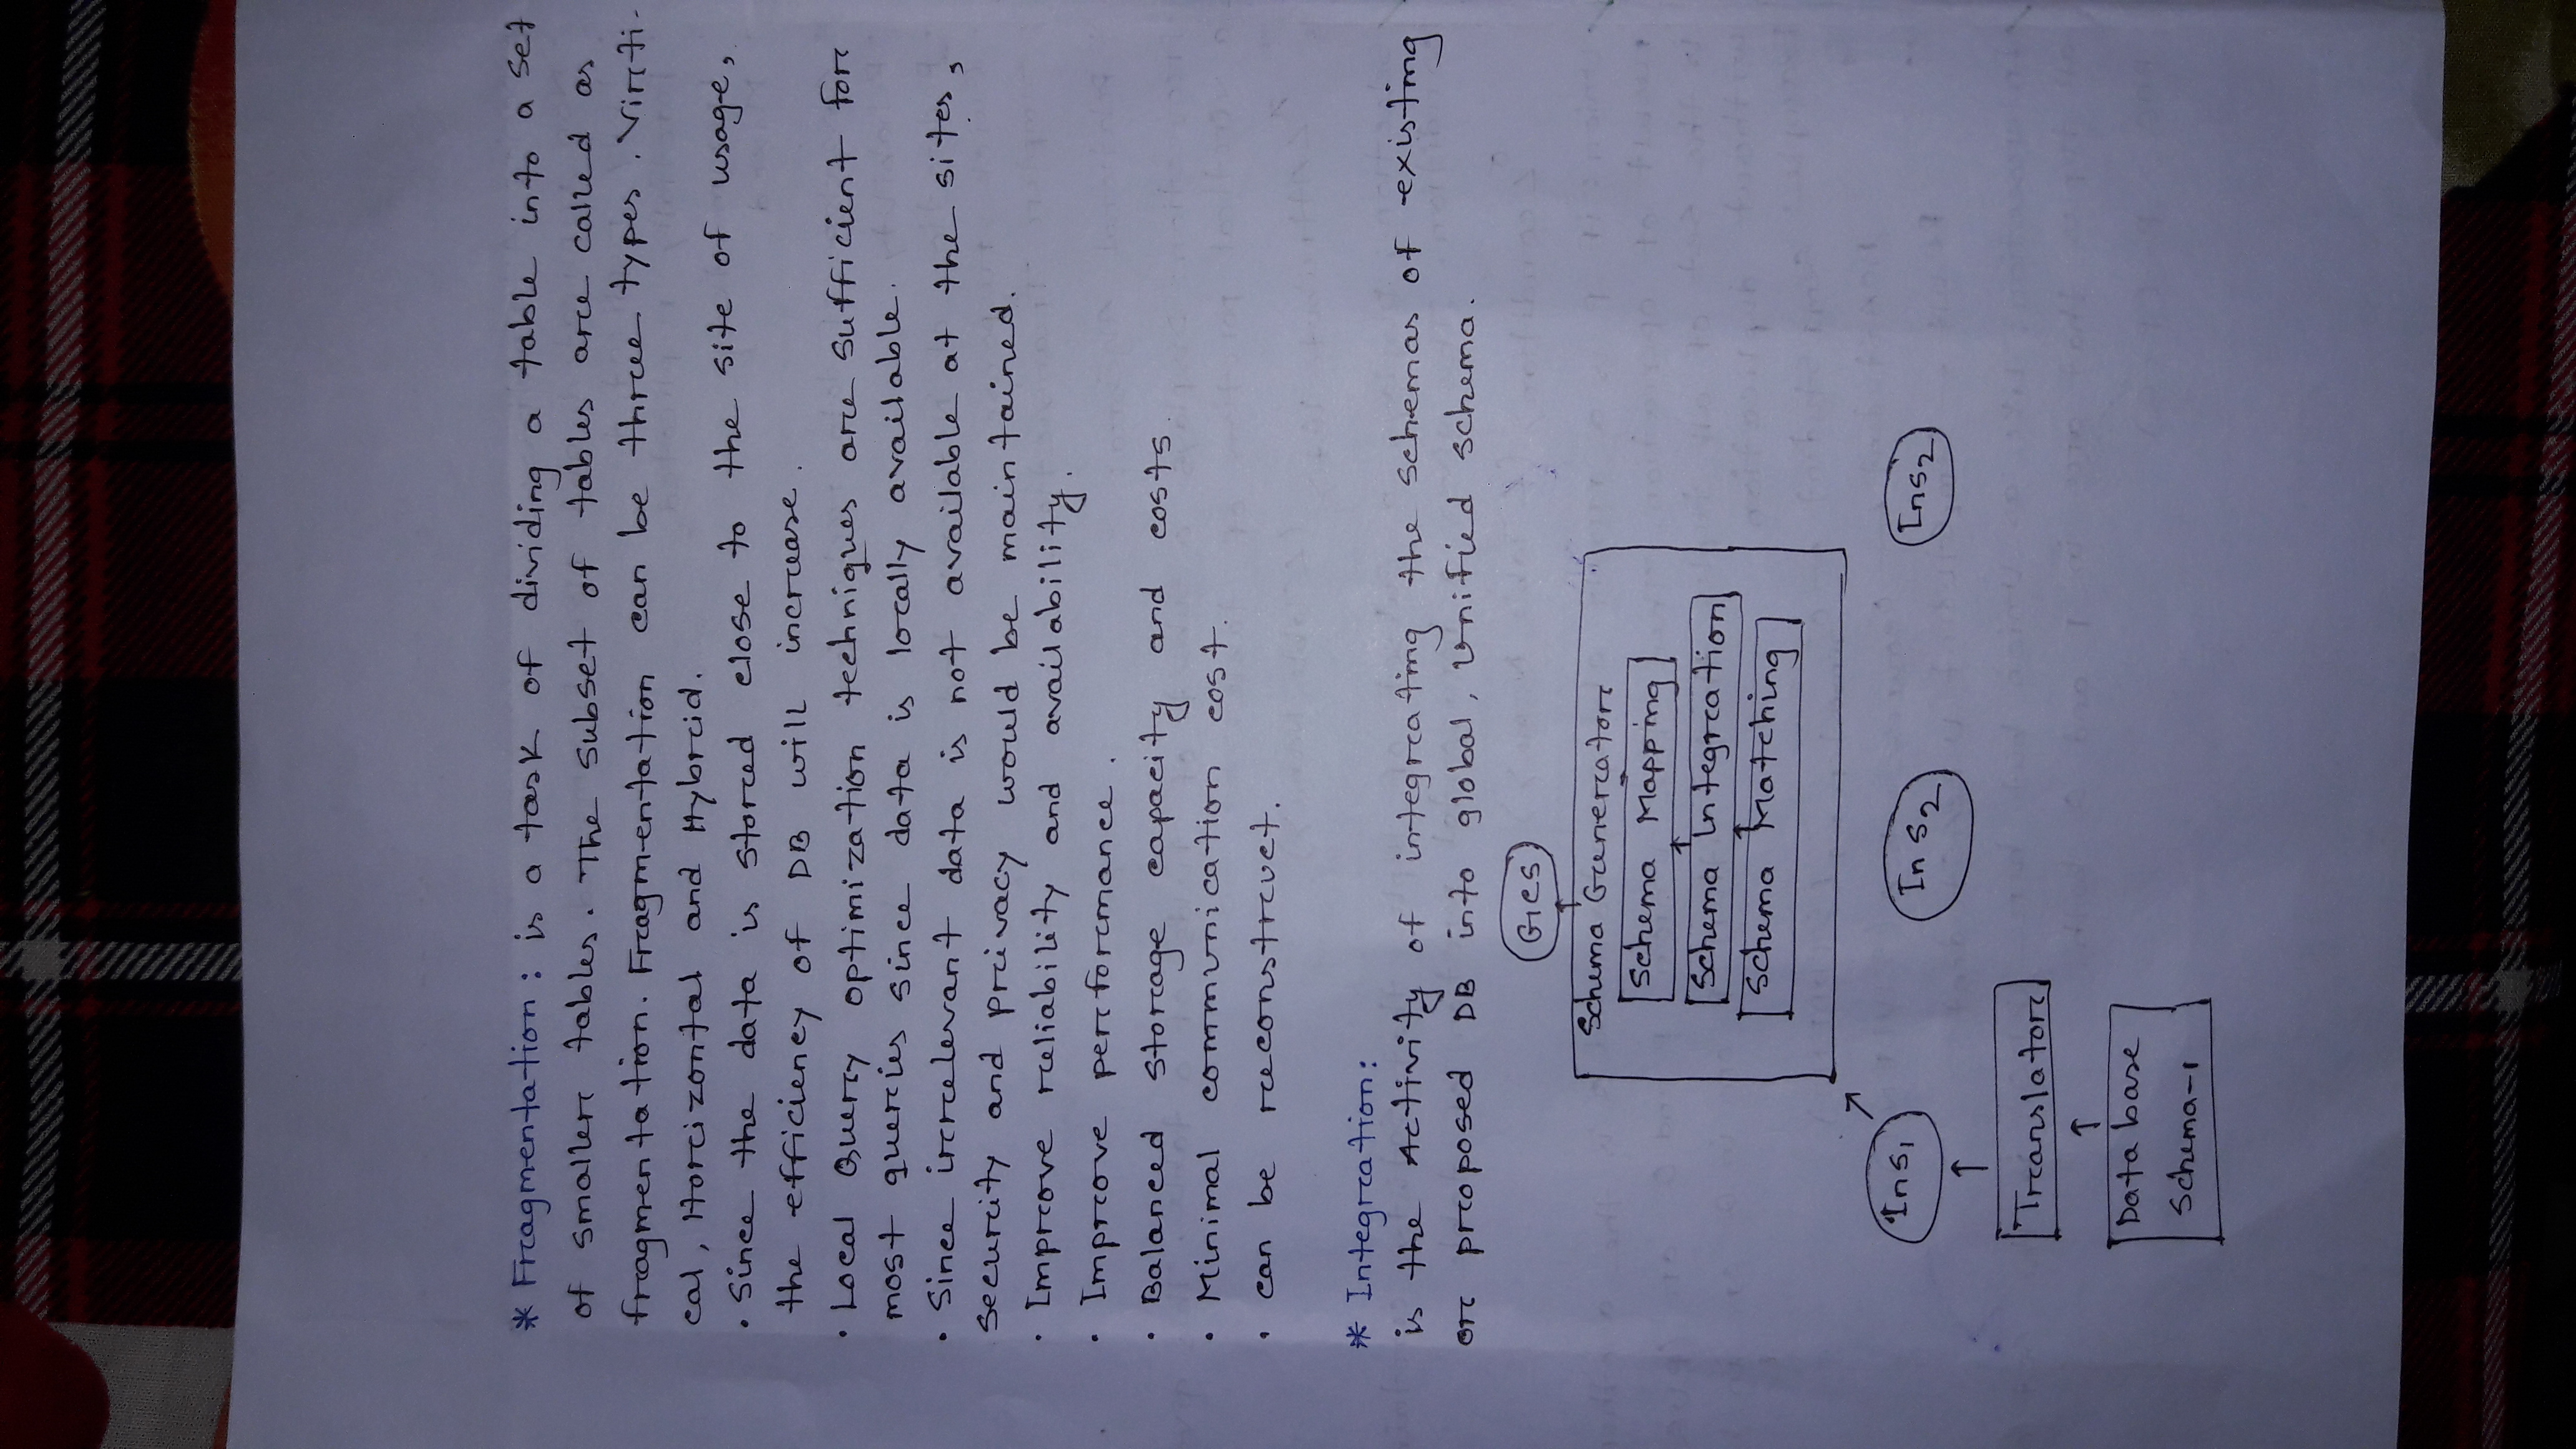 * Fragmentation: is a task of dividing a table into a set
of smaller tables. The subset of tables are called as
fragmentation. Fragmentation can be three types. Virti-
cal, Horizontal and Hybrid.
• Since the data is stored close to the site of usage,
the efficiency of DB will increase.
• Local Query optimization techniques are sufficient for
most queries since data is locally available.
• Since irrelevant data is not available at the sites,
security and privacy would be maintained.
• Improve reliability and availability.
• Improve performance.
• Balanced storage capacity and costs.
• Minimal communication cost.
• can be reconstruct.
* Integration:
is the Activity of integrating the schemas of existing
or proposed DB into global, unified schema.
GCS
Schema Generator
Schema Mapping
Schema Integration
Schema Matching
InS1
InS2
InS2
Translator
Database
Schema-1